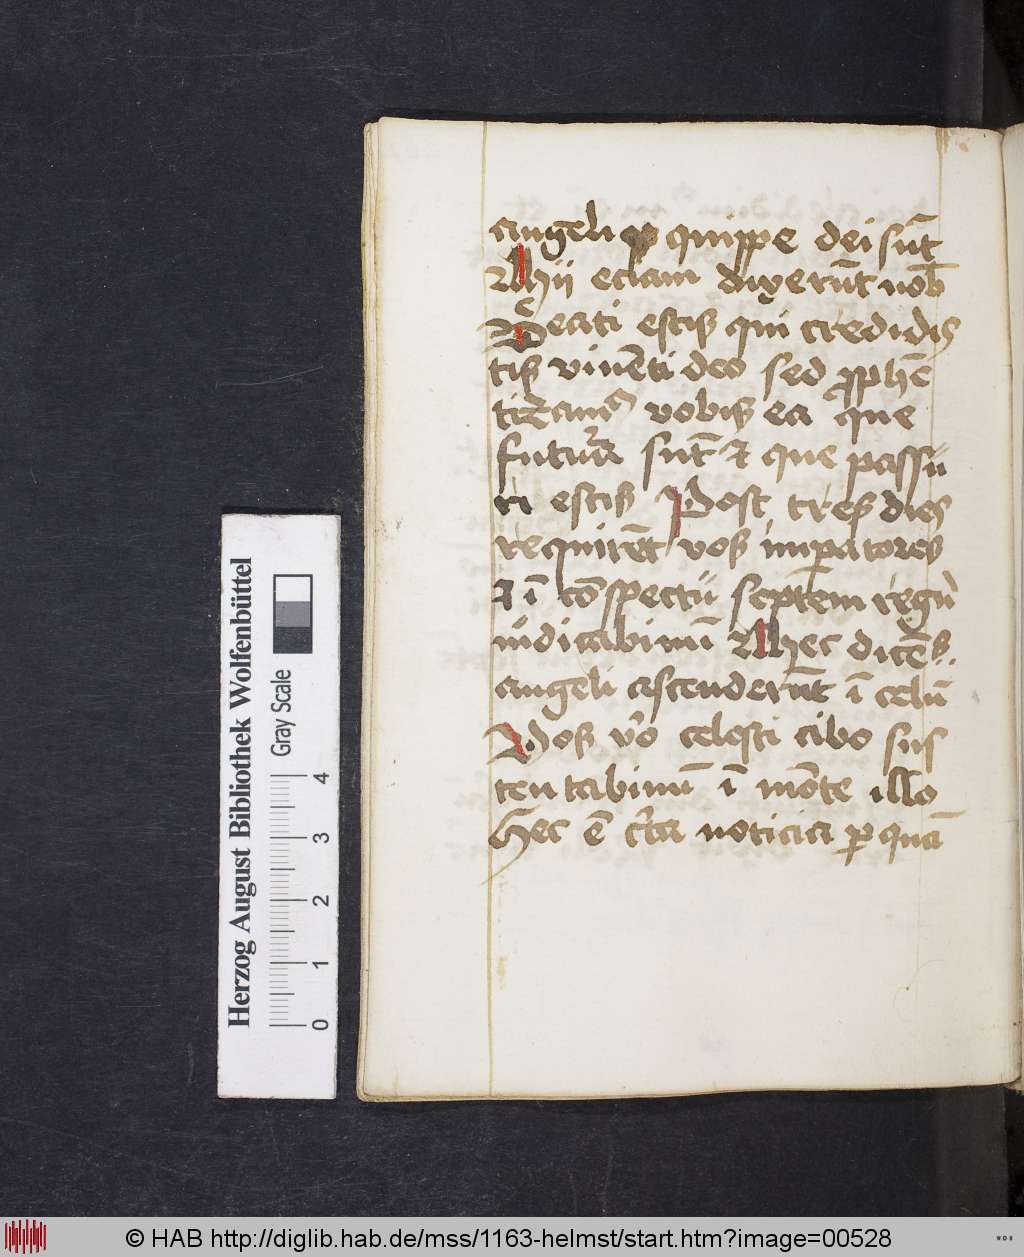 angeli quippe dei sūt
Ahii eciam dixerūt nob̄
Beati estis qui credidis
tis viuēti deo sed ꝓphē
tizamꝰ vobis ea que
futura sūt ⁊ que passu
ri estis Post tres dies
requirēt vos imꝑatores
⁊ ī cōspectu septem regū
iudicabimī Ahec dicēs
angeli ascenderūt ī celū
Vos v̊o celesti cibo sus
tentabimī ī mōte illo
Hec ē c̄ta noticia ꝑ quā
Herzog August Bibliothek Wolfenbüttel
Gray Scale
0 1 2 3 4
© HAB http://diglib.hab.de/mss/1163-helmst/start.htm?image=00528